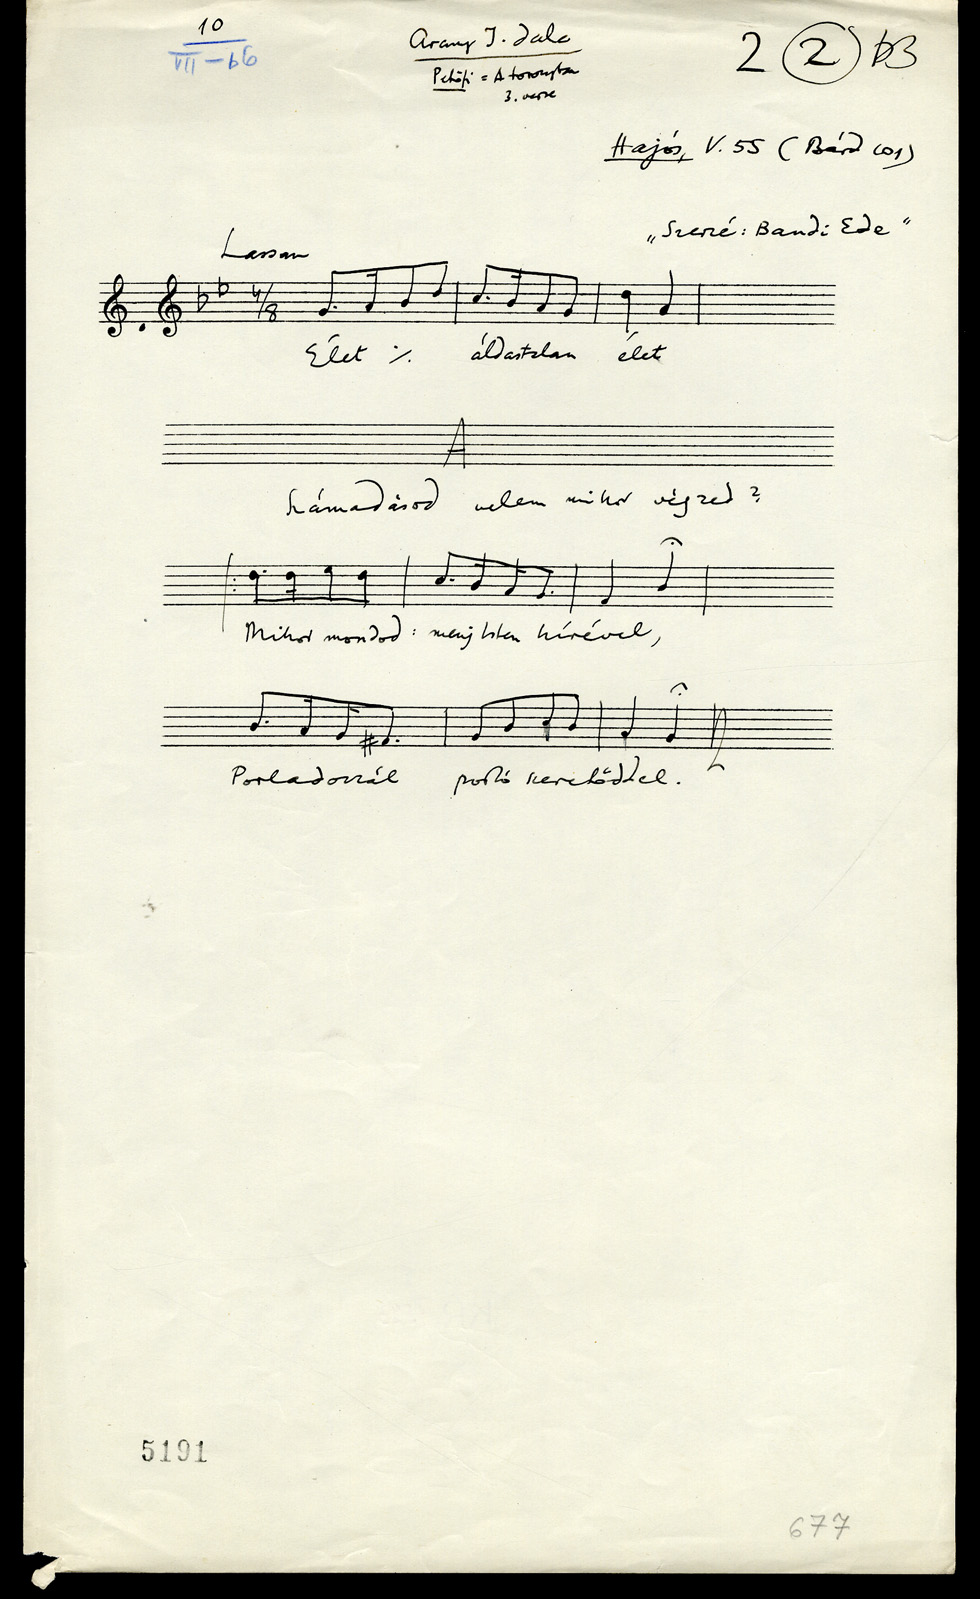 10
VII-66
Arany J. dala
Petőfi = A toronyban
3. verse
2 (2) b3
Hajós, V. 55 (Bárd 
„Szerzé: Bandi Ede"
Lassan
4/8
Élet ·/. áldástalan élet
A
Számadásod velem mikor végzed?
Mikor mondod: menj Isten hírével,
Porladozzál porló szeretőddel.
5191
677